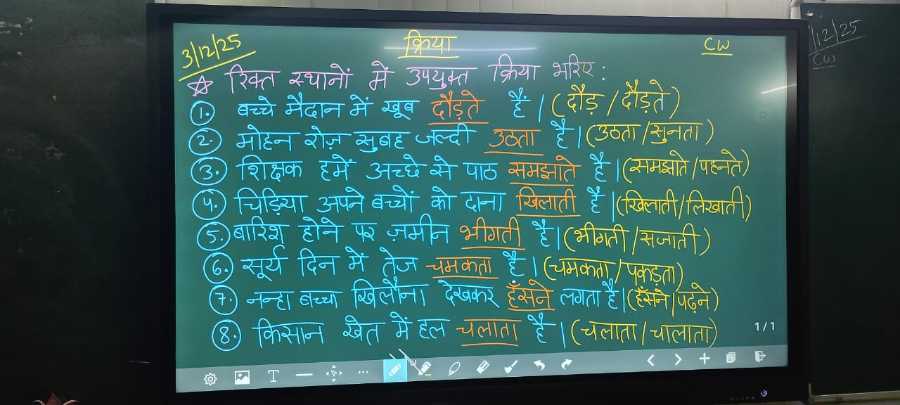 3/12/25
क्रिया
CW
☆ रिक्त स्थानों में उपयुक्त क्रिया भरिए :
1. बच्चे मैदान में खूब दौड़ते है | (दौड़ / दौड़ते )
2. मोहन रोज़ सुबह जल्दी उठता है | (उठता /सुनता )
3. शिक्षक हमें अच्छे से पाठ समझाते है | (समझाते /पहनते)
4. चिड़िया अपने बच्चों को दाना खिलाती है | (खिलाती/लिखाती)
5. बारिश होने पर ज़मीन भीगती है | (भीगती /सजाती )
6. सूर्य दिन में तेज चमकता है | (चमकता/पकड़ता)
7. नन्हा बच्चा खिलौना देखकर हँसने लगता है | (हँसने/पढ़ने)
8. किसान खेत में हल चलाता है | (चलाता / चालाता)
1/1
T
/12/25
CW